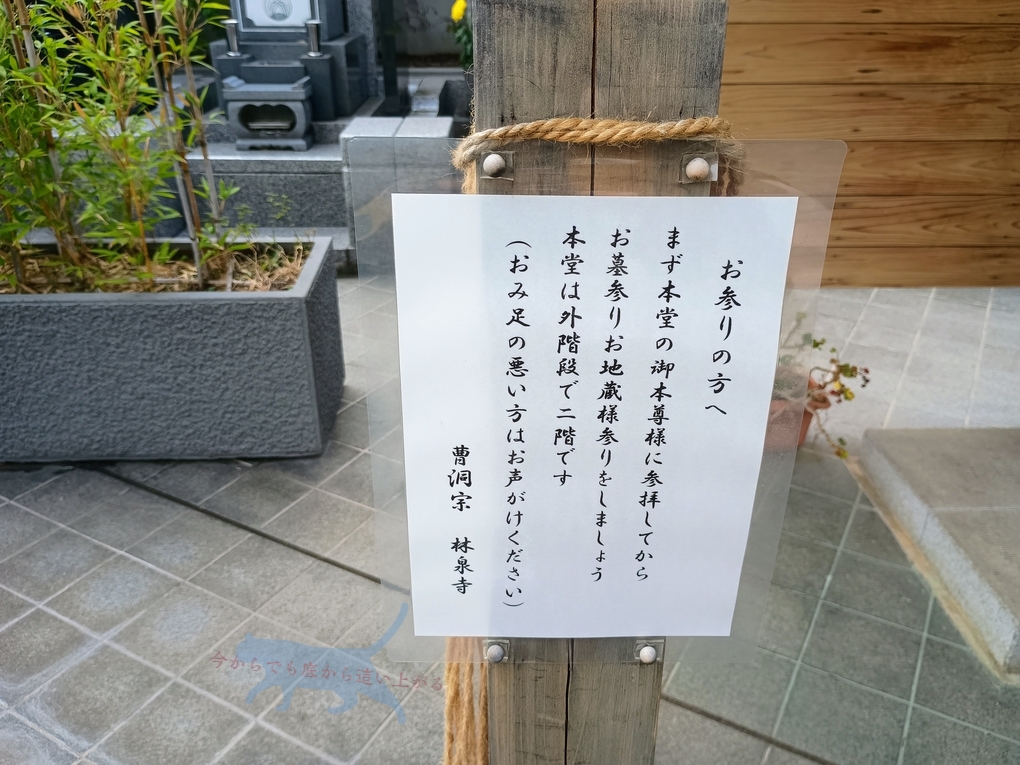 お参りの方へ
まず本堂の御本尊様に参拝してから
お墓参りお地蔵様参りをしましょう
本堂は外階段で二階です
（おみ足の悪い方はお声がけください）
曹洞宗　林泉寺
今からでも底から這い上がる